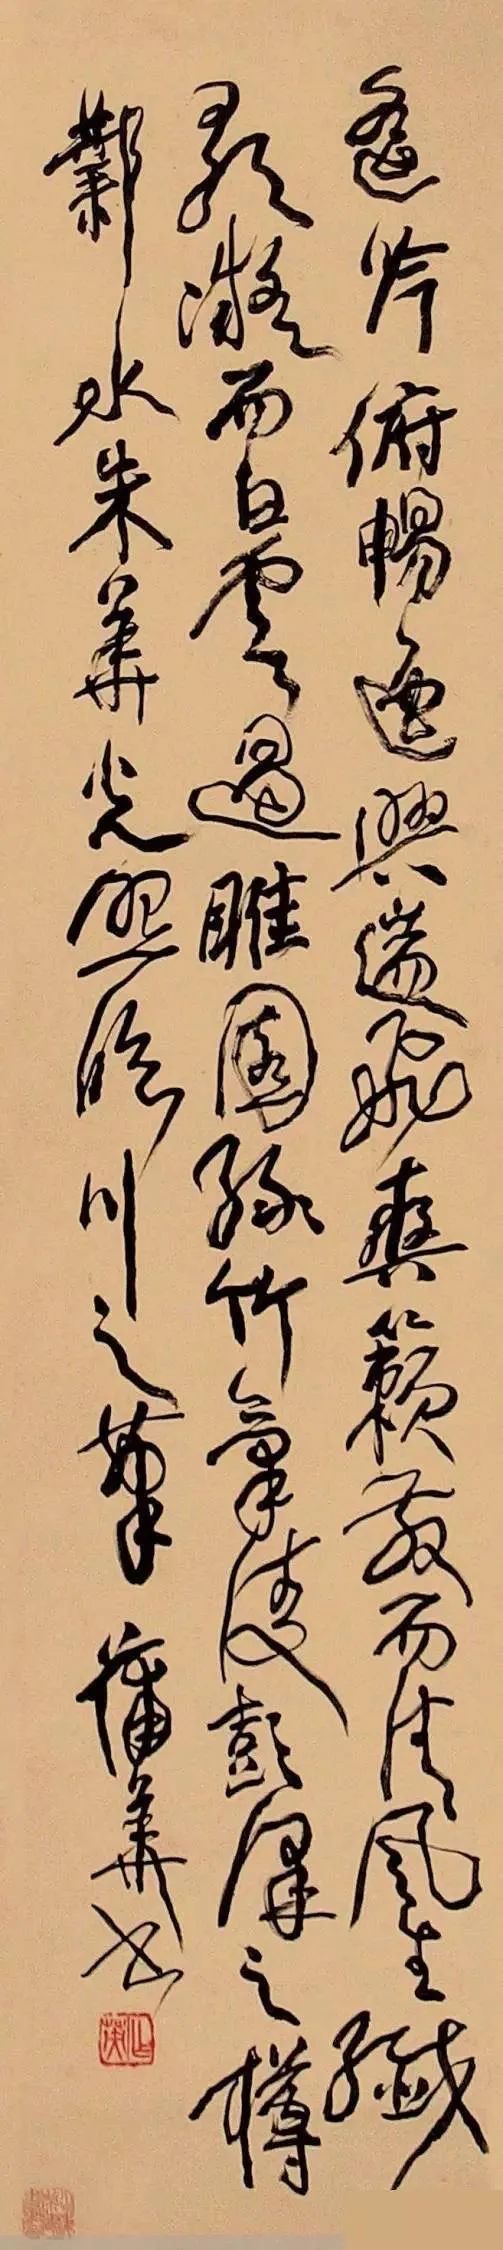 遙吟俯暢逸興遄飛爽籟發而清風生纖
歌凝而白雲遏睢園綠竹氣凌彭澤之樽
鄴水朱華光照臨川之筆 蒲華書